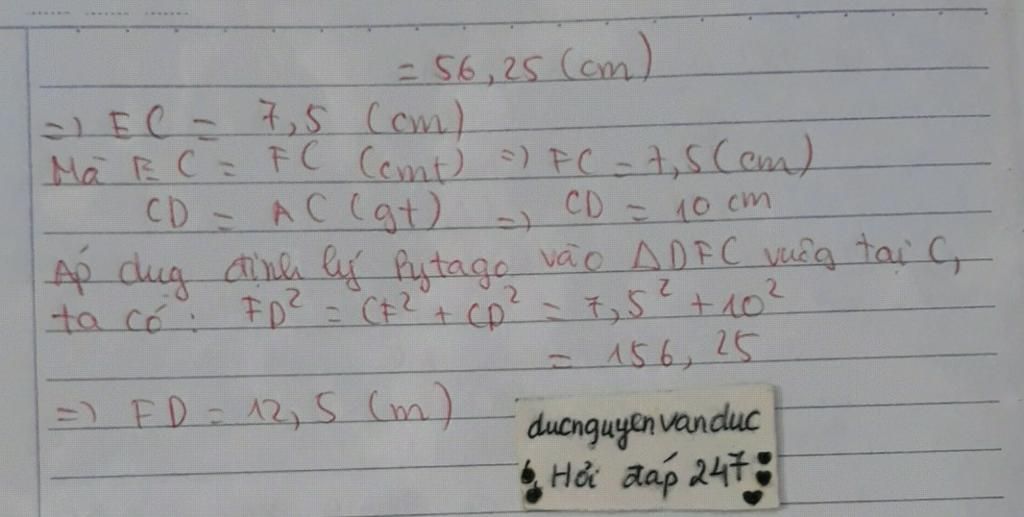 = 56,25 (cm)
=) EC = 7,5 (cm)
Mà EC = FC (cmt) =) FC = 7,5 (cm)
CD = AC (gt) =) CD = 10 cm
Áp dug định lý Pytago vào ΔDFC vuôg tại C,
ta có: FD² = CF² + CD² = 7,5² + 10²
= 156,25
=) FD = 12,5 (m)
ducnguyenvanduc
Hỏi đáp 247